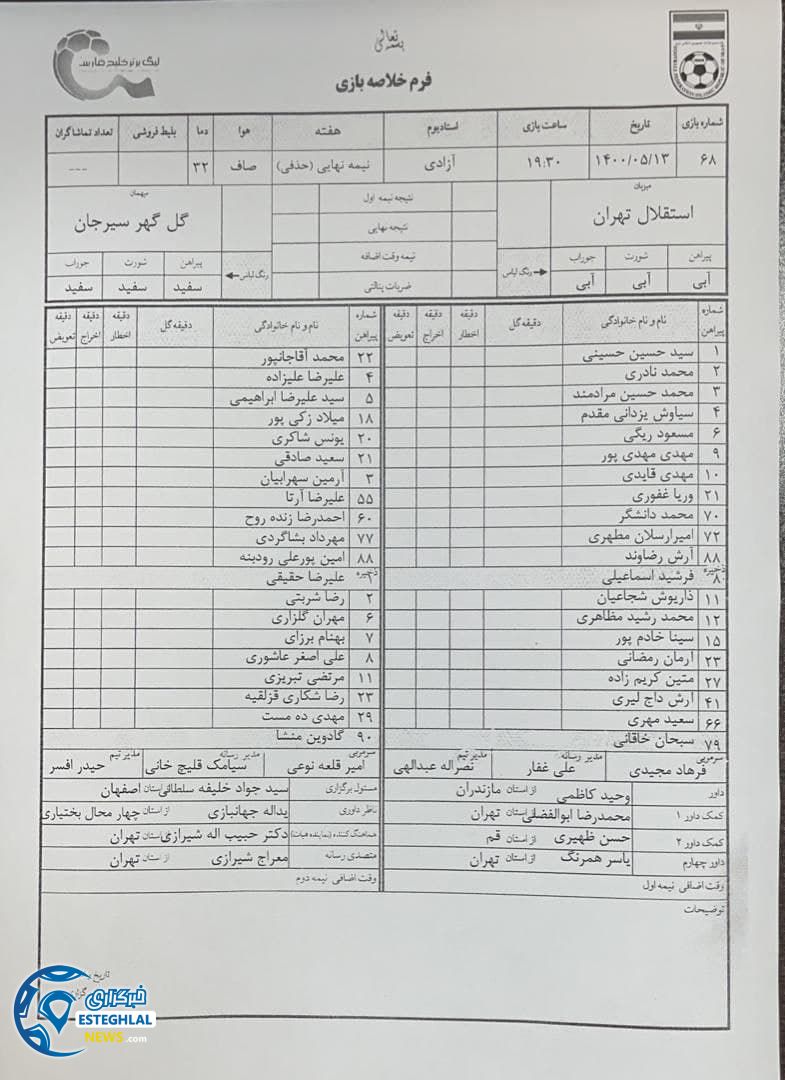 بسمه تعالی
لیگ برتر خلیج فارس
فرم خلاصه بازی
شماره بازی تاریخ ساعت بازی استادیوم هفته هوا دما بلیط فروشی تعداد تماشاگران
۶۸ ۱۴۰۰/۰۵/۱۳ ۱۹:۳۰ آزادی نیمه نهایی (حذفی) صاف ۳۲ ---
میزبان
استقلال تهران
پیراهن شورت جوراب
آبی آبی آبی
رنگ لباس
نتیجه نیمه اول
نتیجه نهایی
نیمه وقت اضافه
ضربات پنالتی
میهمان
گل گهر سیرجان
رنگ لباس
پیراهن شورت جوراب
سفید سفید سفید
شماره پیراهن نام و نام خانوادگی دقیقه گل دقیقه اخطار دقیقه اخراج دقیقه تعویض
۱ سید حسین حسینی
۲ محمد نادری
۳ محمد حسین مرادمند
۴ سیاوش یزدانی مقدم
۶ مسعود ریگی
۹ مهدی مهدی پور
۱۰ مهدی قایدی
۲۱ وریا غفوری
۷۰ محمد دانشگر
۷۲ امیرارسلان مطهری
۸۸ آرش رضاوند
ذخیره
۸ فرشید اسماعیلی
۱۱ داریوش شجاعیان
۱۲ محمد رشید مظاهری
۱۵ سینا خادم پور
۲۳ آرمان رمضانی
۲۷ متین کریم زاده
۴۱ آرش داج لیری
۶۶ سعید مهری
۷۹ سبحان خاقانی
سرمربی فرهاد مجیدی مدیر رسانه علی غفار مدیر تیم نصراله عبدالهی
شماره پیراهن نام و نام خانوادگی دقیقه گل دقیقه اخطار دقیقه اخراج دقیقه تعویض
۲۲ محمد آقاجانپور
۴ علیرضا علیزاده
۵ سید علیرضا ابراهیمی
۱۸ میلاد زکی پور
۲۰ یونس شاکری
۲۱ سعید صادقی
۳ آرمین سهرابیان
۵۵ علیرضا آرتا
۶۰ احمدرضا زنده روح
۷۷ مهرداد بشاگردی
۸۸ امین پورعلی رودبنه
ذخیره
علیرضا حقیقی
۲ رضا شربتی
۶ مهران گلزاری
۷ بهنام برزای
۸ علی اصغر عاشوری
۱۱ مرتضی تبریزی
۲۳ رضا شکاری قزلقیه
۲۹ مهدی ده مست
۹۰ گادوین منشا
سرمربی امیر قلعه نوعی مدیر رسانه سیامک قلیچ خانی مدیر تیم حیدر افسر
داور وحید کاظمی از استان مازندران
کمک داور ۱ محمدرضا ابوالفضلی از استان تهران
کمک داور ۲ حسن ظهیری از استان قم
داور چهارم یاسر همرنگ از استان تهران
وقت اضافی نیمه اول
توضیحات
مسئول برگزاری سید جواد خلیفه سلطانی استان اصفهان
ناظر داوری یداله جهانبازی از استان چهار محال بختیاری
هماهنگ کننده (نماینده هیات) دکتر حبیب اله شیرازی استان تهران
متصدی رسانه معراج شیرازی از استان تهران
وقت اضافی نیمه دوم
خبرگزاری
ESTEGHLAL
NEWS.com